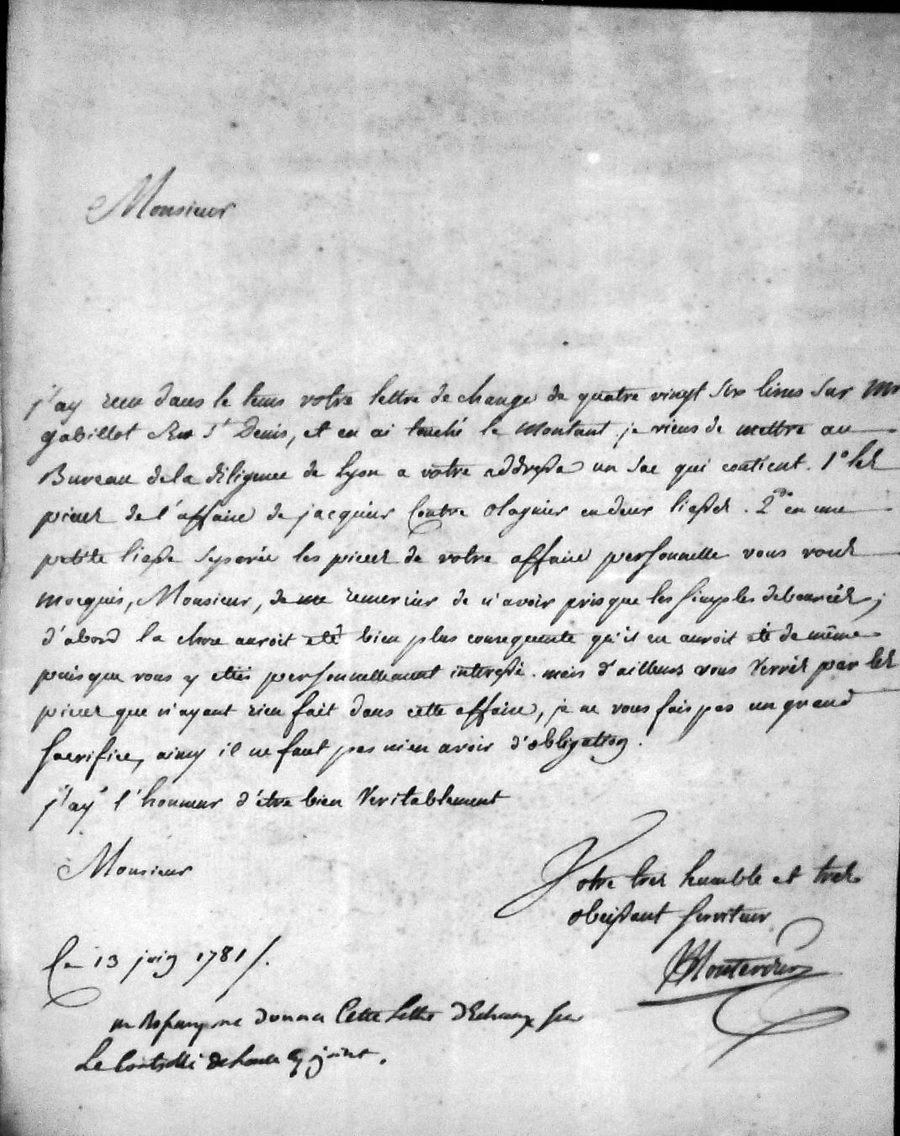 Monsieur
j'ay recu dans le tems votre lettre de change de quatre vingt six livres sur Mr
gabillot Rue St Denis, et en ai touché le montant, je viens de mettre au
Bureau de la diligence de Lyon a votre addresse un sac qui contient. 1° les
pieces de l'affaire de jacquier Contre olagnier en deux liasses. 2° en une
petite liasse separée les pieces de votre affaire personnelle vous vous
mocqués, Monsieur, de me remercier de n'avoir pris que les simples deboursés;
d'abord la chose auroit eté bien plus consequente qu'il en auroit eté de même
puisque vous y etiés personnellement interessé. mais d'ailleurs vous verrés par les
pieces que n'ayant rien fait dans cette affaire, je ne vous fais pas un grand
sacrifice, ainsy il ne faut pas m'en avoir d'obligation.
j'ay l'honneur d'être bien veritablement
Monsieur
Votre tres humble et tres
obeissant serviteur
Ce 13 juin 1781 /.
donner Cette Lettre
Le